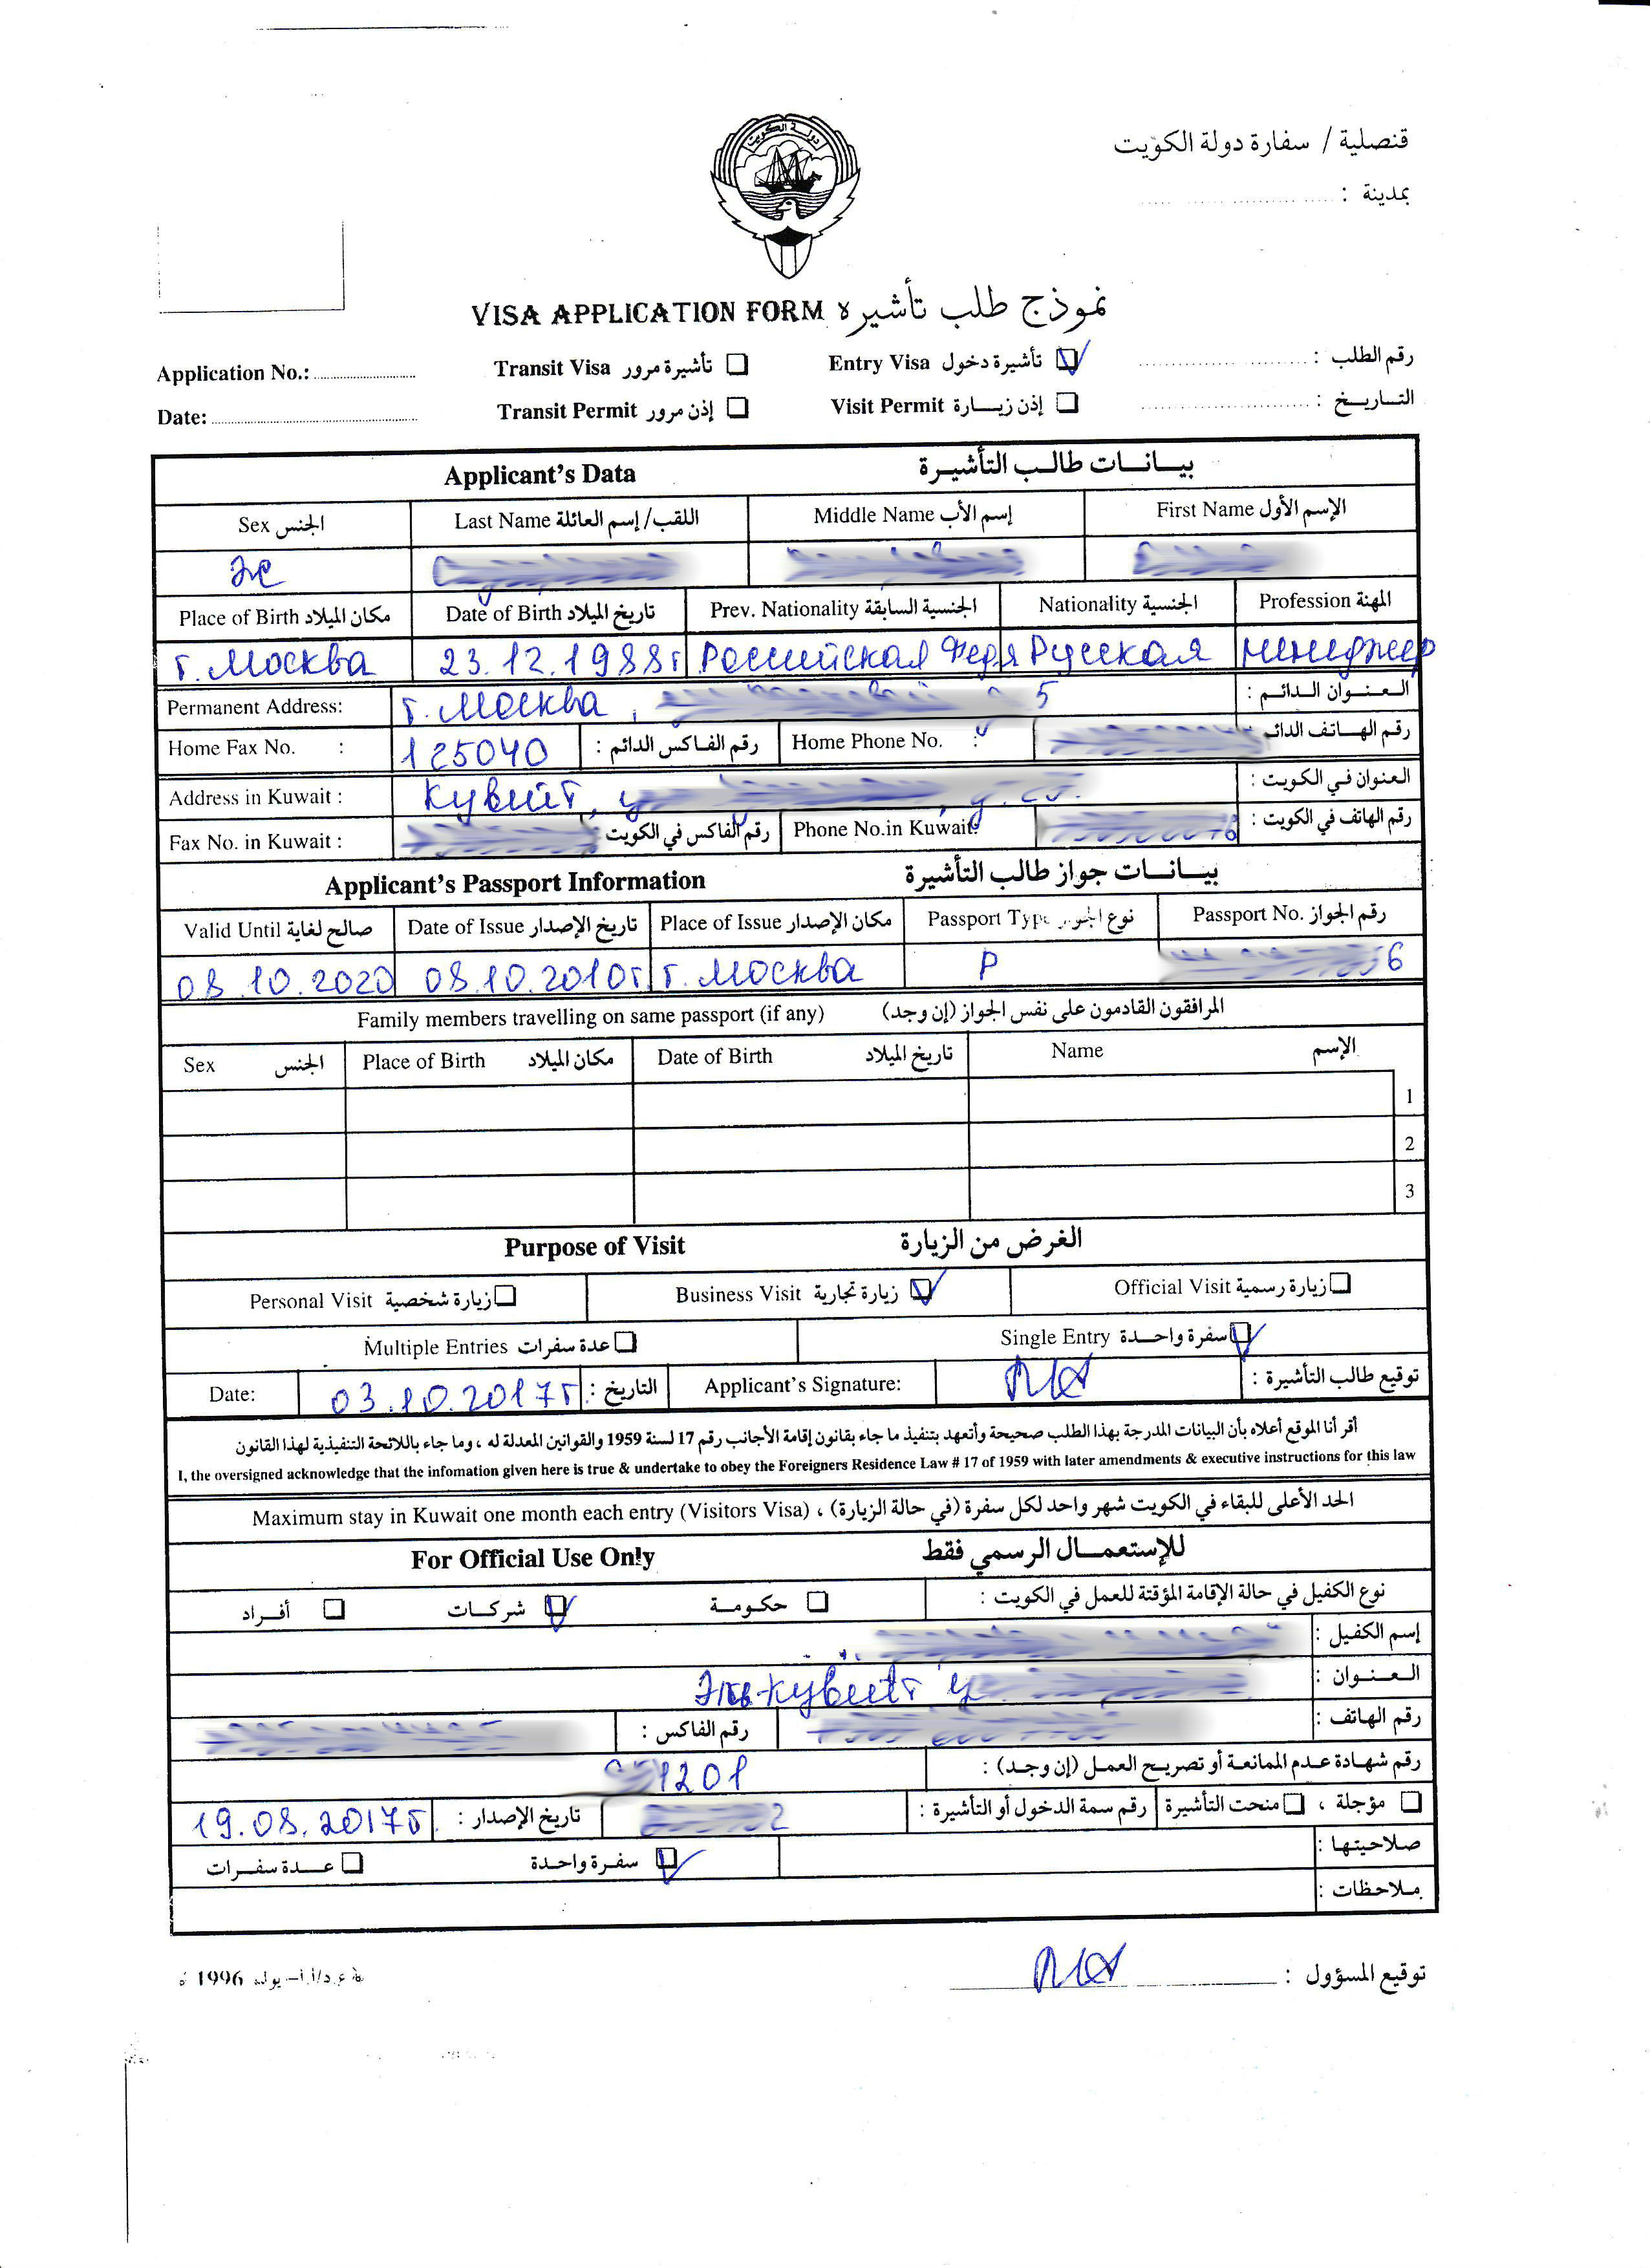 قنصلية / سفارة دولة الكويت
بمدينة :
دولة الكويت
VISA APPLICATION FORM نموذج طلب تأشيره
Application No.: Transit Visa تأشيرة مرور Entry Visa تأشيرة دخول رقم الطلب :
Date: Transit Permit إذن مرور Visit Permit إذن زيـــارة التـــاريــخ :
Applicant's Data بيـــانـــات طالــب التأشيـرة
Sex الجنس Last Name اللقب/ إسم العائلة Middle Name إسم الأب First Name الإسم الأول
Же
Place of Birth مكان الميلاد Date of Birth تاريخ الميلاد Prev. Nationality الجنسية السابقة Nationality الجنسية Profession المهنة
г. Москва 23.12.1988г Российская Федя Русская менеджер
Permanent Address: г. Москва, 5 العـنــوان الـدائــم :
Home Fax No. : 125040 رقم الفـاكس الدائم : Home Phone No. : رقم الهـــاتف الدائـ
Address in Kuwait : Кувейт, у العنوان فـي الكويت :
Fax No. in Kuwait : رقم الفاكس في الكويت Phone No.in Kuwait: رقم الهاتف في الكويت :
Applicant's Passport Information بيـــانـــات جواز طالب التأشيرة
Valid Until صالح لغاية Date of Issue تاريخ الإصدار Place of Issue مكان الإصدار Passport Type نوع الجواز Passport No. رقم الجواز
08.10.2020 08.10.2010г. г. Москва P 6
Family members travelling on same passport (if any) المرافقون القادمون على نفس الجواز (إن وجد)
Sex الجنس Place of Birth مكان الميلاد Date of Birth تاريخ الميلاد Name الإسم
1
2
3
Purpose of Visit الغرض من الزيارة
Personal Visit زيارة شخصية Business Visit زيارة تجارية Official Visit زيارة رسمية
Multiple Entries عدة سفرات Single Entry سفرة واحــدة
Date: 03.10.2017г التاريخ : Applicant's Signature: توقيع طالب التأشيرة :
أقر أنا الموقع أعلاه بأن البيانات المدرجة بهذا الطلب صحيحة وأتعهد بتنفيذ ما جاء بقانون إقامة الأجانب رقم 17 لسنة 1959 والقوانين المعدلة له ، وما جاء باللائحة التنفيذية لهذا القانون
I, the oversigned acknowledge that the infomation given here is true & undertake to obey the Foreigners Residence Law # 17 of 1959 with later amendments & executive instructions for this law
Maximum stay in Kuwait one month each entry (Visitors Visa) ، الحد الأعلى للبقاء في الكويت شهر واحد لكل سفرة (في حالة الزيارة)
For Official Use Only للإستعمــال الرسمي فقط
نوع الكفيل في حالة الإقامة المؤقتة للعمل في الكويت : حكـومـة شركـات أفـراد
إسم الكفيل :
العــنــوان : Эль-Кувейт у
رقم الهاتف : رقم الفاكس :
رقم شهادة عـدم الممانعة أو تصريح العمـل (إن وجـد) : 1201
مؤجلة ، منحت التأشيرة رقم سمة الدخول أو التأشيرة : 2 تاريخ الإصدار : 19.08.2017г.
صلاحيتها :
سفـرة واحـدة عــدة سفــرات
ملاحظات :
توقيع المسؤول :
1996